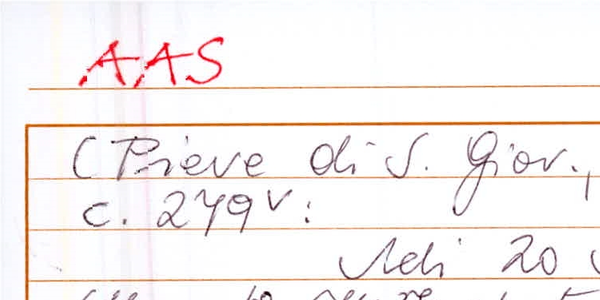 AAS
(Pieve di S. Giov.,
c. 279v:
Adi 20